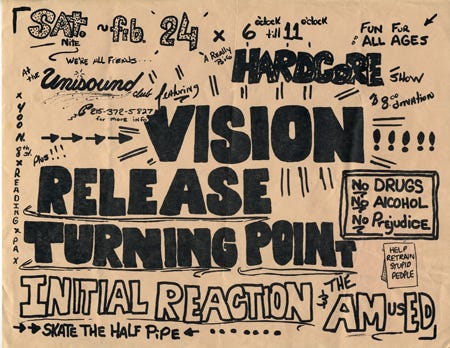 SAT. ~ feb. 24 x 6 o'clock till 11 o'clock
NITE
FUN FOR
ALL AGES
WE'RE ALL FRIENDS...
A Really
BIG
HARDCORE SHOW
At the Unisound club featuring
$8.00 donation
215-372-5827
for more info
VISION
Plus!!!
RELEASE
TURNING POINT
x 400 N. 8th St. x READING x PA x
No DRUGS
No Alcohol
No Prejudice
HELP
RETRAIN
STUPID
PEOPLE
INITIAL REACTION & THE AMUSED
SKATE THE HALF PIPE